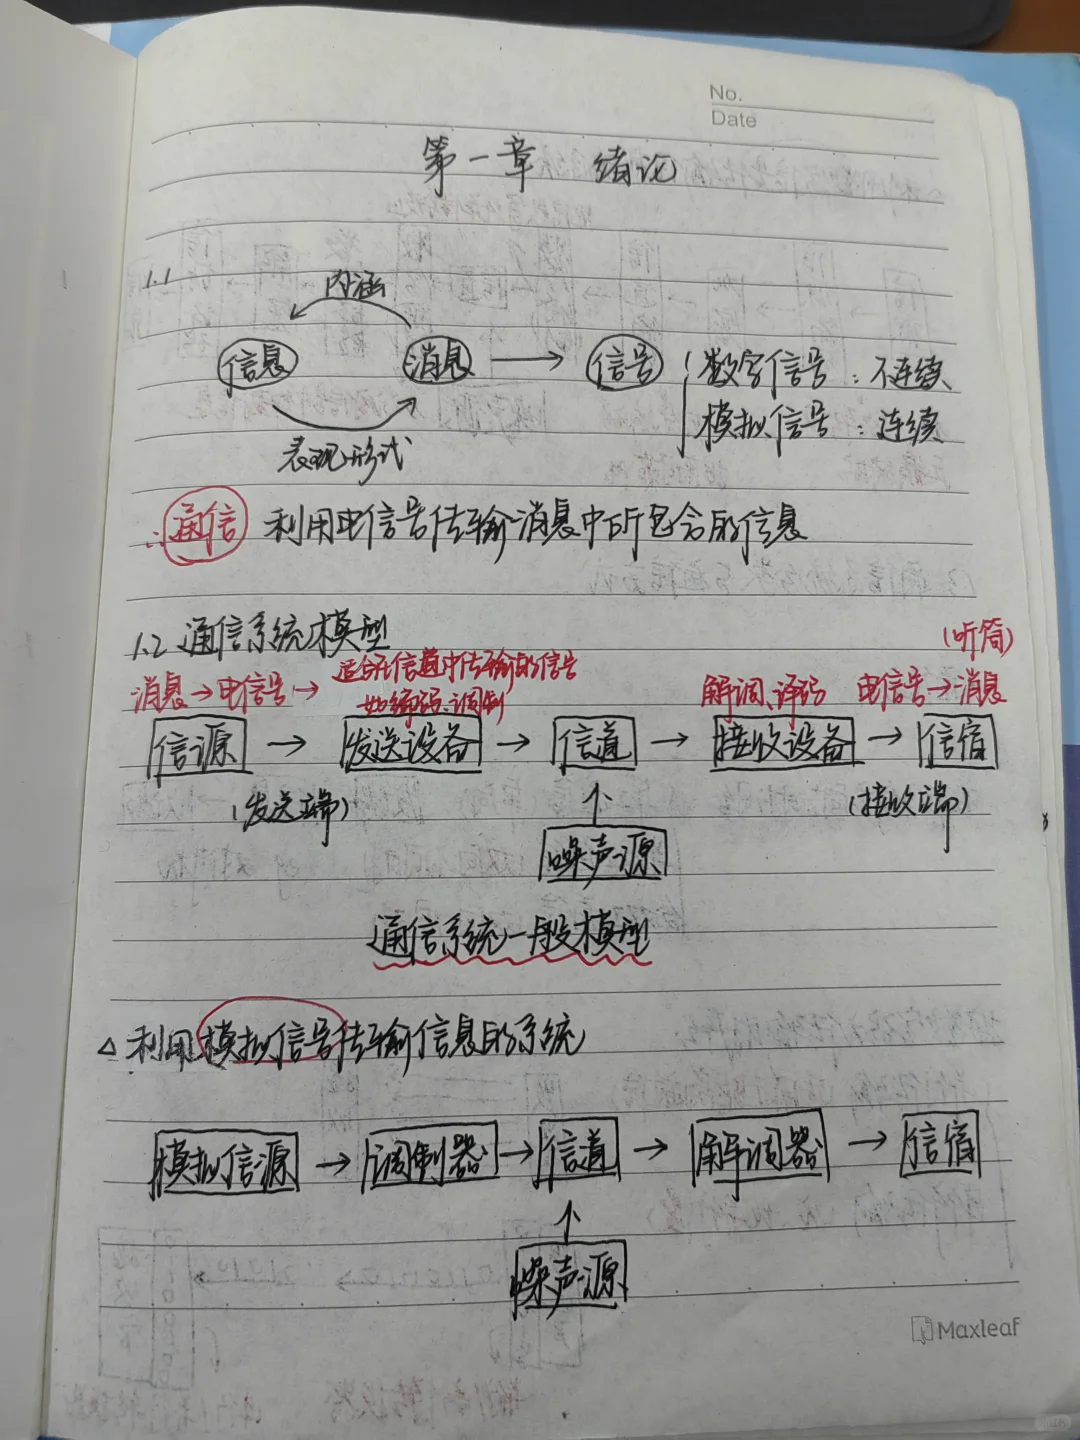 No.
Date
第一章 绪论
1.1
内涵
信息 消息 → 信号 { 数字信号：不连续
模拟信号：连续
表现形式
∴ 通信 利用电信号传输消息中所包含的信息
1.2 通信系统模型
(听筒)
消息→电信号→ 适合在信道中传输的信号 解调、译码 电信号→消息
如编码、调制
信源 → 发送设备 → 信道 → 接收设备 → 信宿
(发送端) ↑ (接收端)
噪声源
通信系统一般模型
△ 利用模拟信号传输信息的系统
模拟信源 → 调制器 → 信道 → 解调器 → 信宿
↑
噪声源
Maxleaf